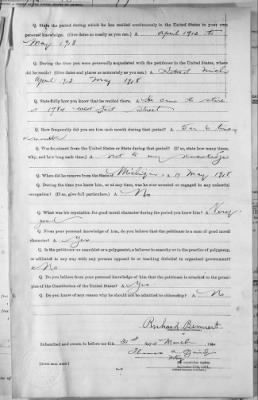 Q. State the period during which he has resided continuously in the United States to your own
personal knowledge. (Give dates as nearly as you can.) A. April 1912 to
May 1918
Q. During the time you were personally acquainted with the petitioner in the United States, where
did he reside? (Give dates and places as accurately as you can.) A. Detroit Mich
April 1912 May 1918
Q. State fully how you know that he resided there. A. He came to store
at 1984 West Fort Street
Q. How frequently did you see him each month during that period? A.
month
Q. Was he absent from the United States or State during that period? (If so, state how many times,
why, and how long each time.) A. not to my knowledge
Q. When did he remove from the State of Michigan A. May 1918
Q. During the time you knew him, or at any time, was he ever arrested or engaged in any unlawful
occupation? (If so, give full particulars.) A. No
Q. What was his reputation for good moral character during the period you knew him? A. Very
good
Q. From your personal knowledge of him, do you believe that the petitioner is a man of good moral
character? A. Yes
Q. Is the petitioner an anarchist or a polygamist, a believer in anarchy or in the practice of polygamy,
or affiliated in any way with any persons opposed to or teaching disbelief in organized government?
A. No
Q. Do you believe from your personal knowledge of him that the petitioner is attached to the princi-
ples of the Constitution of the United States? A. Yes
Q. Do you know of any reason why he should not be admitted to citizenship? A. No
Richard Bennert
Subscribed and sworn to before me this day of March
Thomas